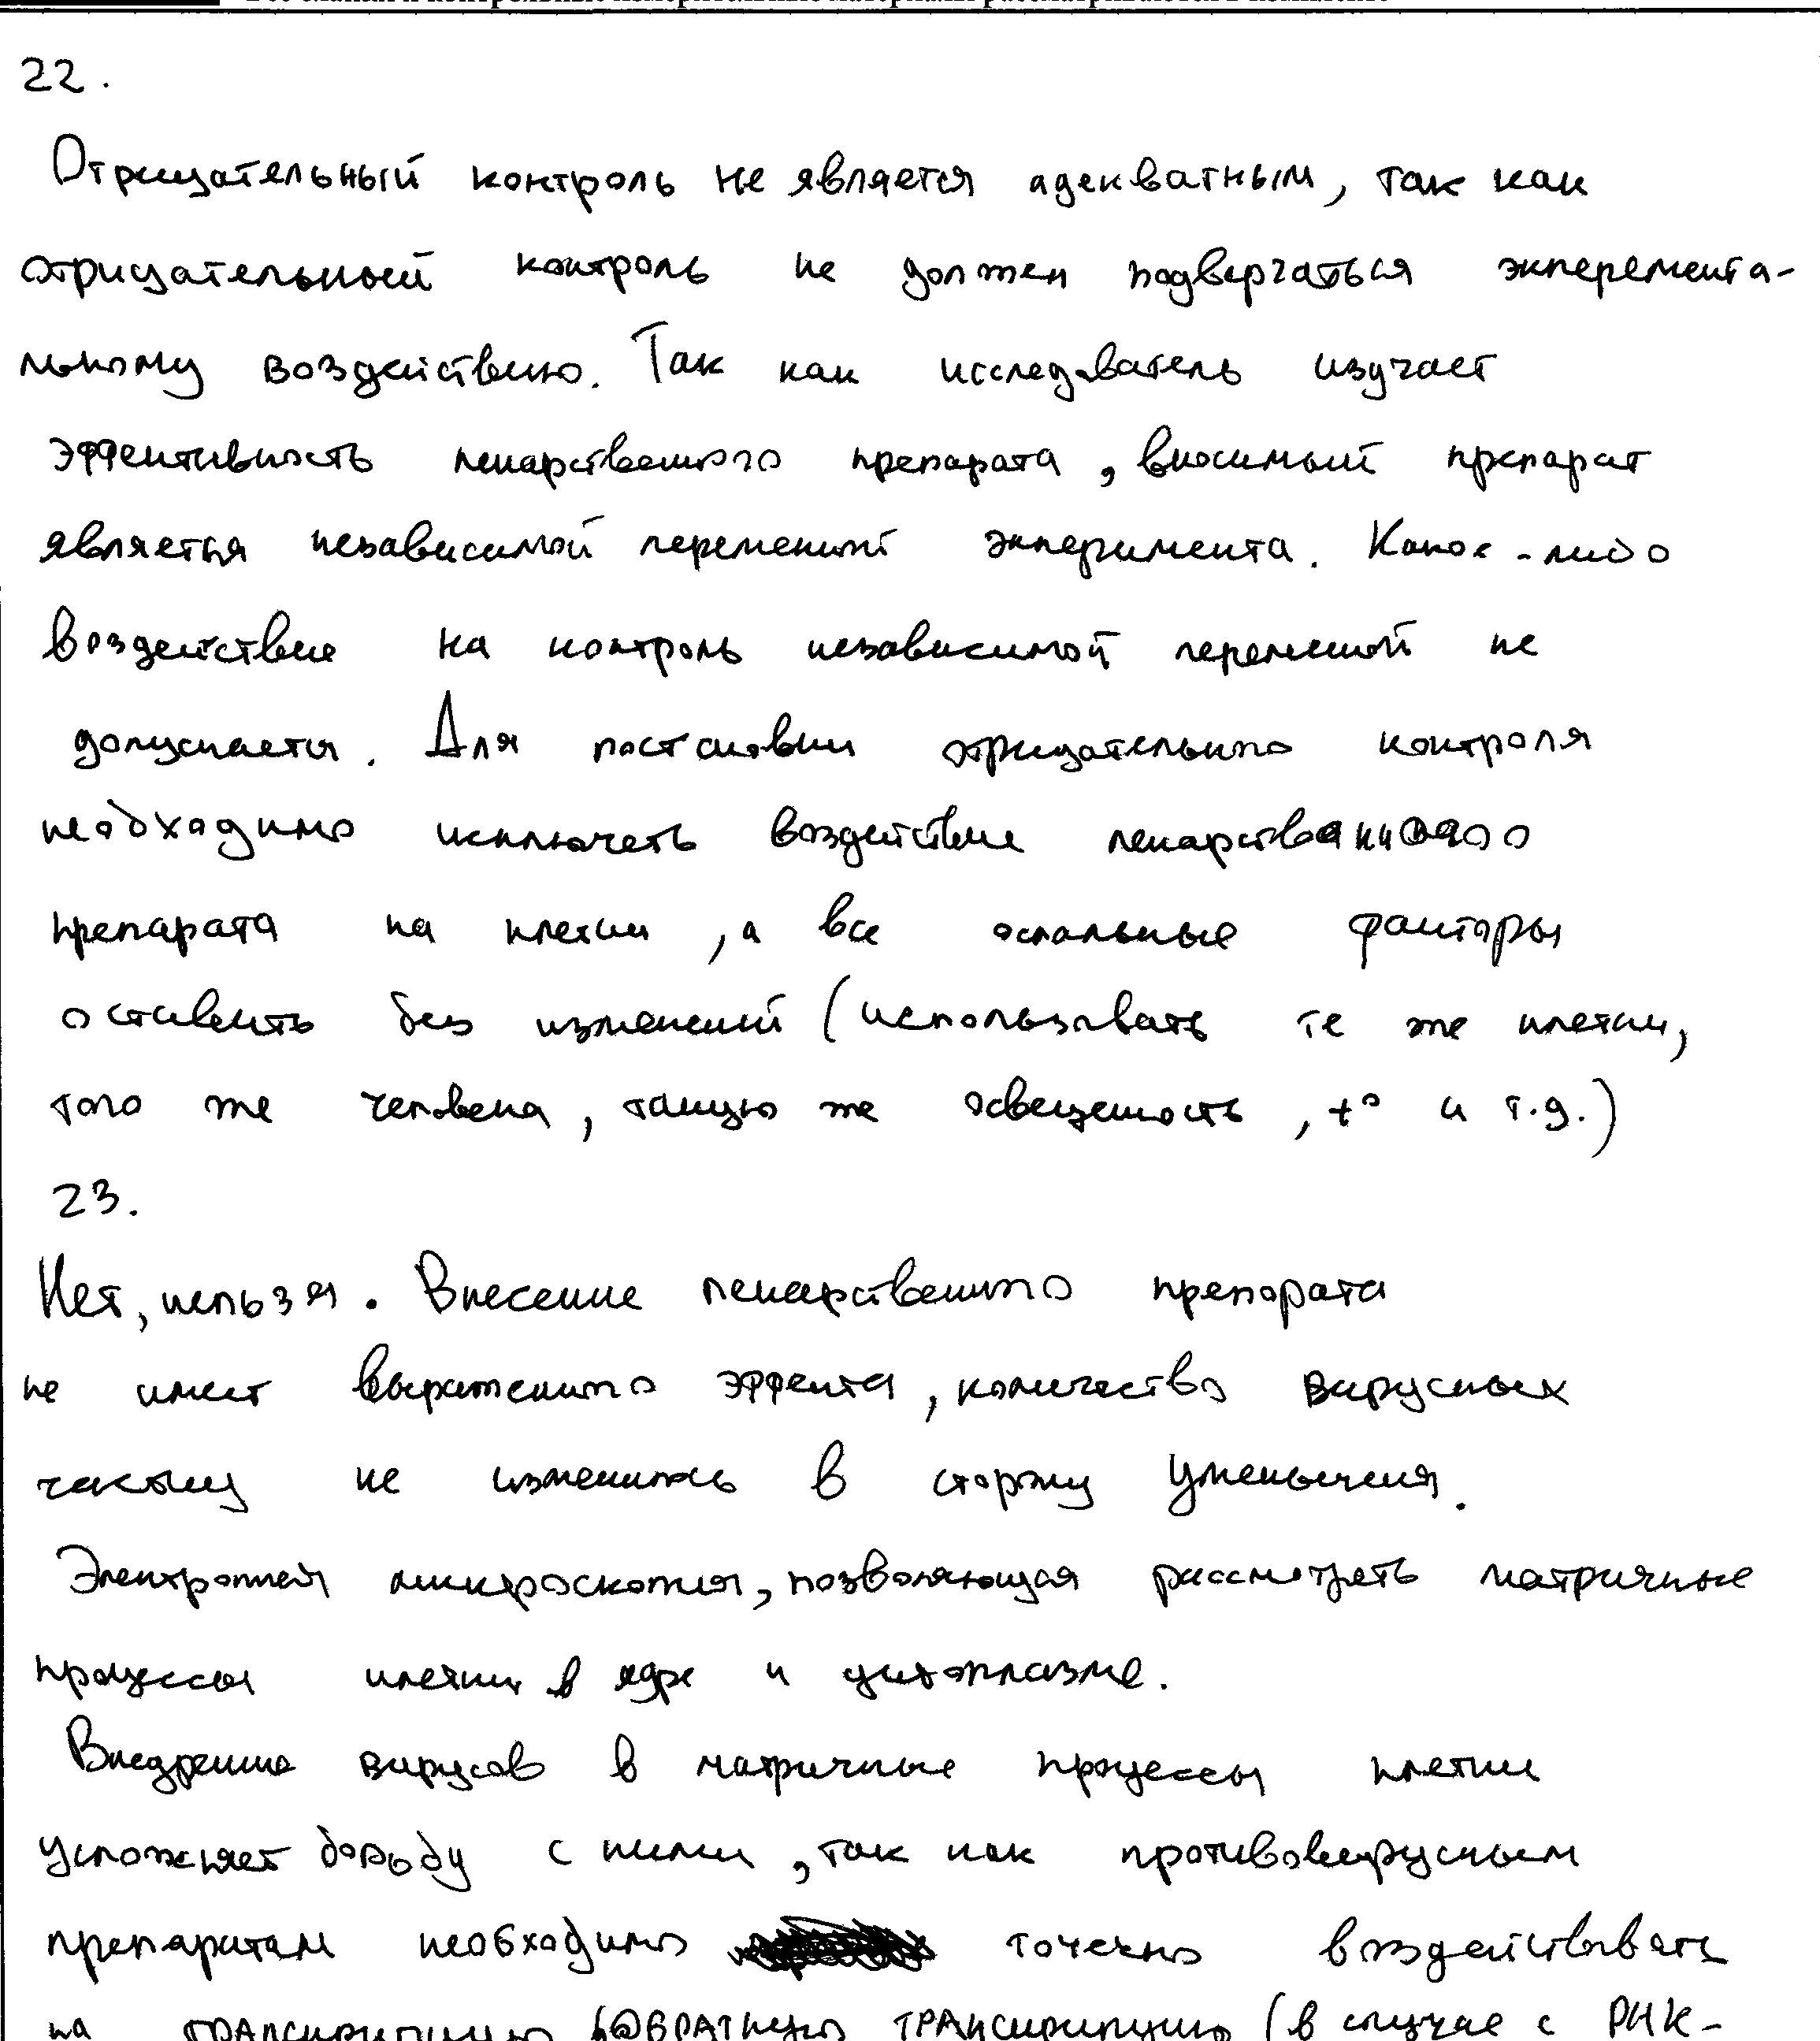 22.
Отрицательный контроль не является адекватным, так как
отрицательный контроль не должен подвергаться эксперемента-
льному воздействию. Так как исследователь изучает
эффективность лекарственного препарата, вносимый препарат
является независимой переменной эксперимента. Какое-либо
воздействие на контроль независимой переменой не
допускается. Для постановки отрицательного контроля
необходимо исключеть воздействие лекарственного
препарата на клетки, а все остальные факторы
оставить без изменений (использовать те же клетки,
того же человека, такую же освещеность, t° и т.д.)
23.
Нет, нельзя. Внесение лекарственного препарата
не имеет выраженного эффекта, количество вирусных
частиц не изменилось в сторону уменьшения.
Электронная микроскопия, позволяющая рассмотреть матричные
процессы клетки в ядре и цитоплазме.
Внедрение вирусов в матричные процессы клетки
усложняет борьбу с ними, так как противовирусным
препаратам необходимо точечно воздействовать
на транскрипцию обратную транскрипцию (в случае с РНК-